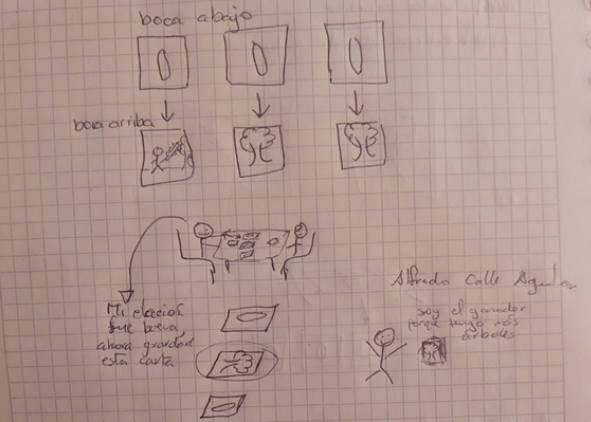 boca abajo
boca arriba
Mi elección
fue buena,
ahora guardaré
esta carta
Alfredo Calle
soy el ganador
porque tengo más
árboles